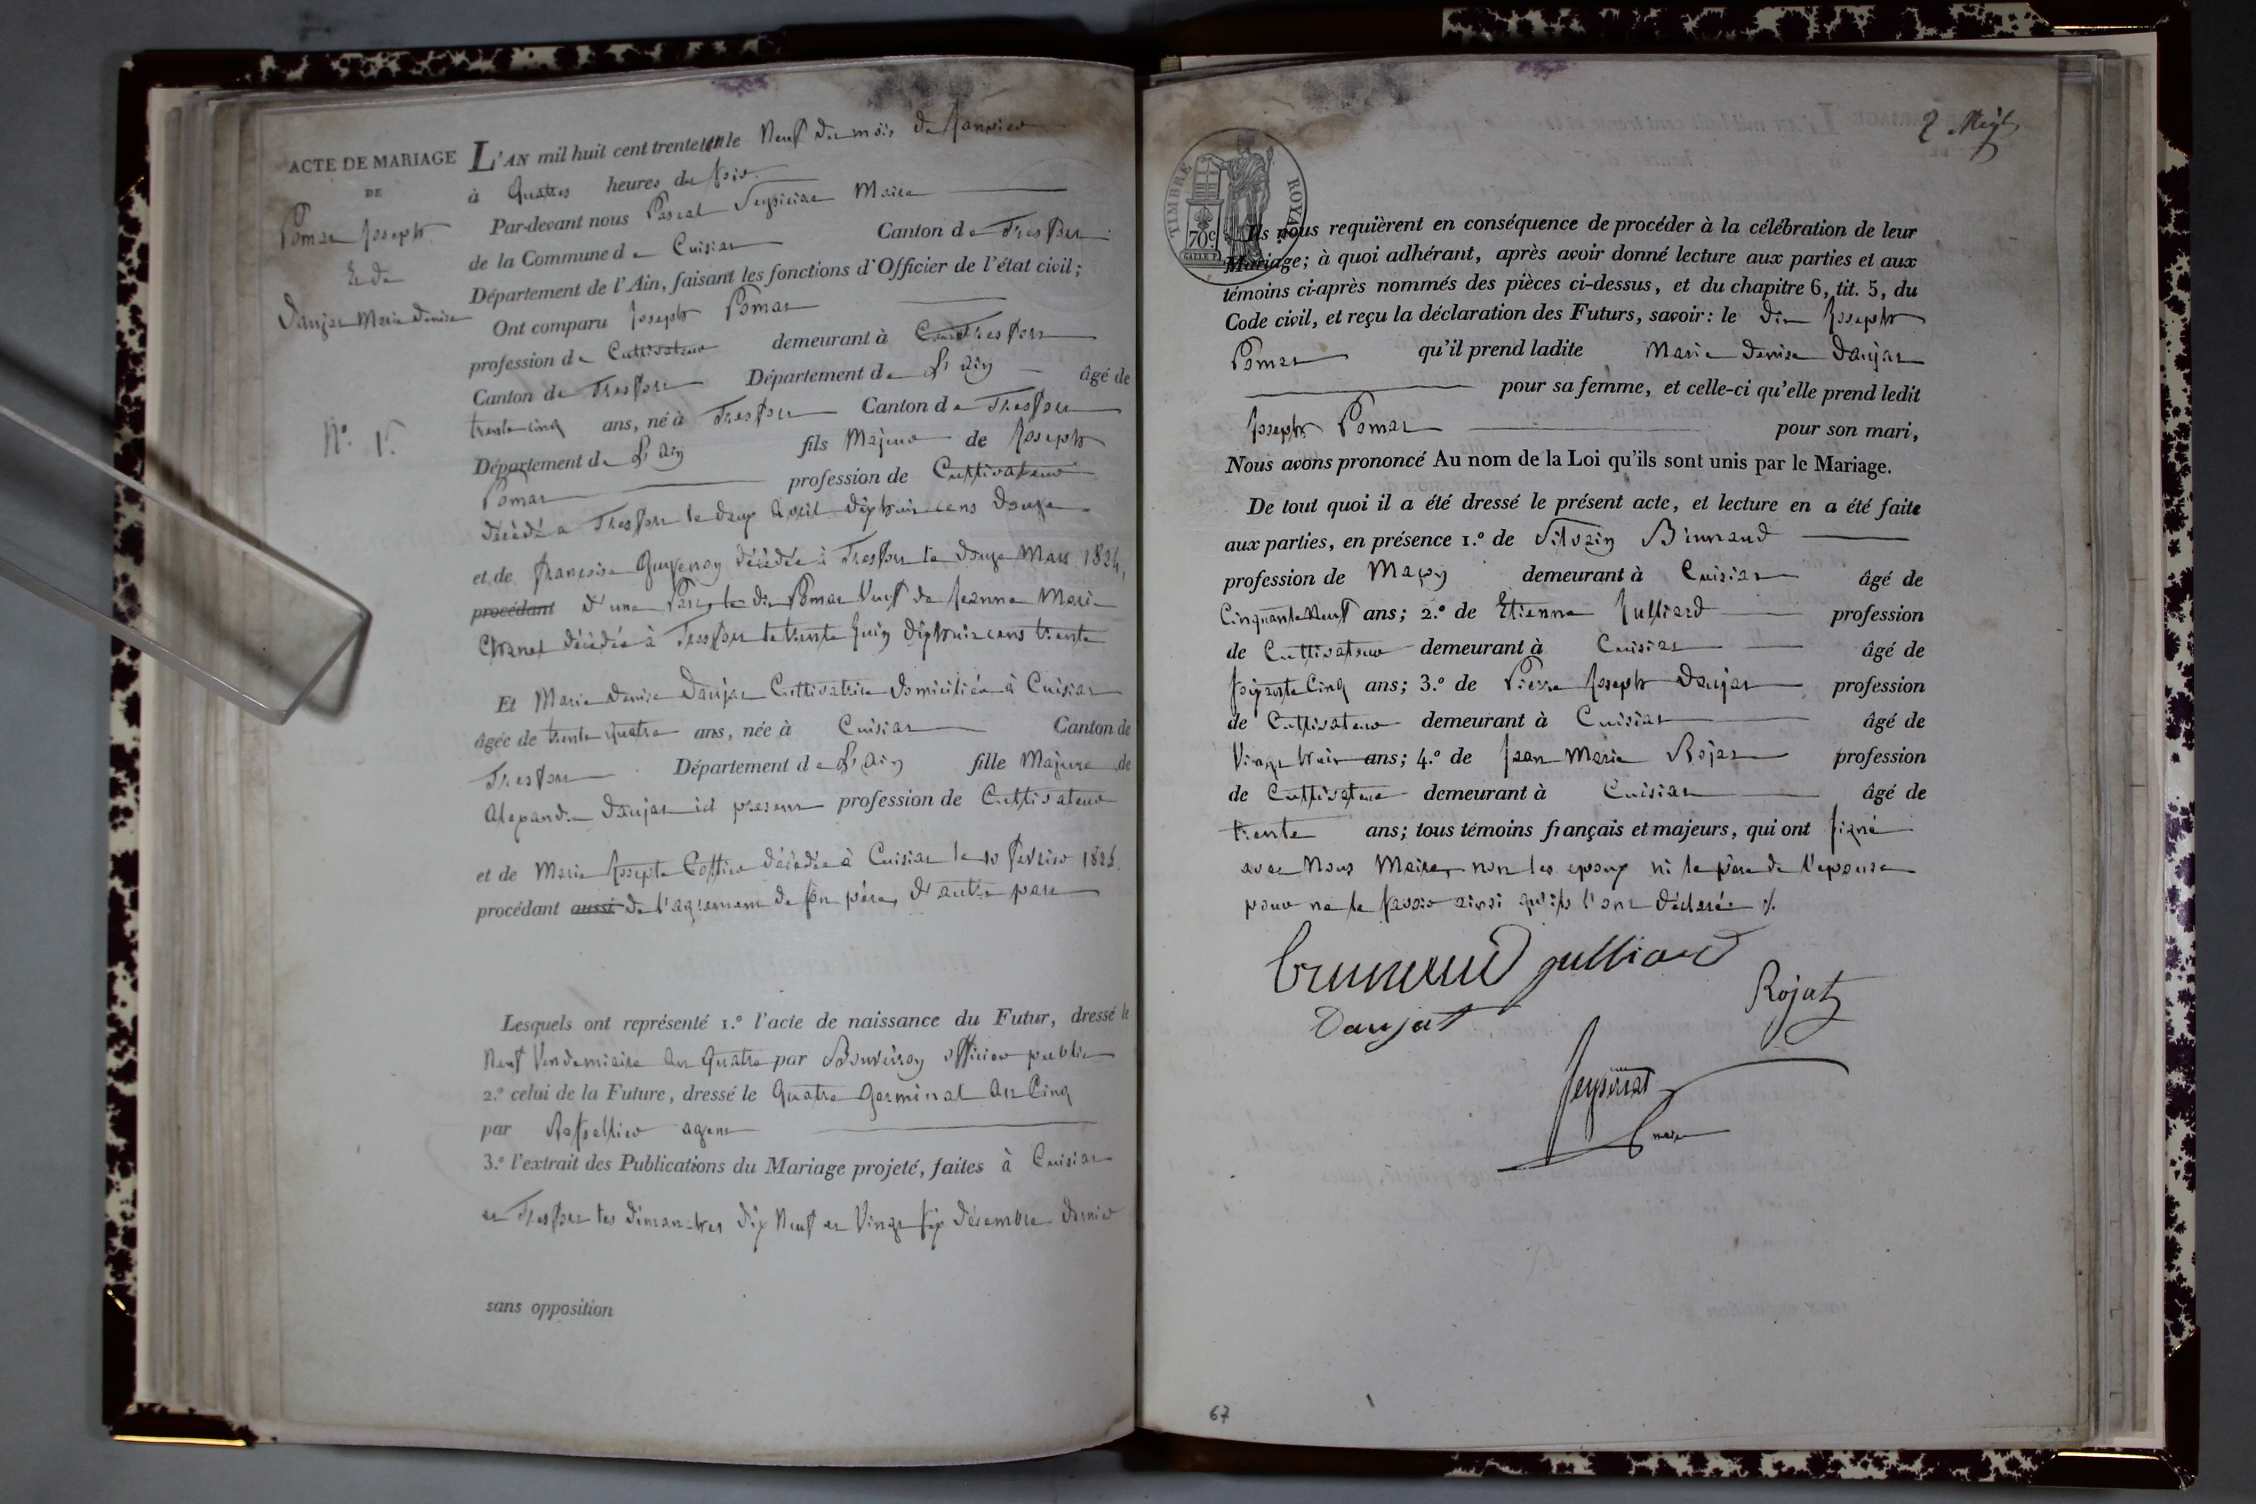 ACTE DE MARIAGE
DE
Pomat Joseph
Et de
Daujat Marie Denise
N.o 1.
L'AN mil huit cent trente un le Neuf du mois de Janvier
à Quatres heures du soir
Par-devant nous Pascal Seyssirat Maire
de la Commune de Cuisiat Canton de Treffort
Département de l'Ain, faisant les fonctions d'Officier de l'état civil;
Ont comparu Joseph Pomat
profession de Cultivateur demeurant à Treffort
Canton de Treffort Département de L'ain âgé de
trente cinq ans, né à Treffort Canton de Treffort
Département de L'ain fils Majeur de Joseph
Pomat profession de Cultivateur
décédé a Treffort le deux Avril dix huit cens douze
et de francoise décédée à Treffort le douze Mars 1824,
procédant d'une Part, le dit Pomat Veuf de Jeanne Marie
Chanel décédée à Treffort le trente Juin dix huit cens trente
Et Marie Denise Daujat Cultivatrice domiciliée à Cuisiat
âgée de trente quatre ans, née à Cuisiat Canton de
Treffort Département de L'ain fille Majeure de
Alexandre Daujat ici present profession de Cultivateur
et de Marie Josepte décédée à Cuisiat le 10 fevrier
procédant aussi de l'agrement de son père, d'autre part
Lesquels ont représenté 1.o l'acte de naissance du Futur, dressé le
Neuf Vendemiaire an Quatre par Bouveiron officier public
2.o celui de la Future, dressé le Quatre germinal an Cinq
par agent
3.o l'extrait des Publications du Mariage projeté, faites à Cuisiat
et Treffort les dimanches dix Neuf et Vingt six décembre dernier
sans opposition
TIMBRE ROYAL
70c
Ils nous requièrent en conséquence de procéder à la célébration de leur
Mariage; à quoi adhérant, après avoir donné lecture aux parties et aux
témoins ci-après nommés des pièces ci-dessus, et du chapitre 6, tit. 5, du
Code civil, et reçu la déclaration des Futurs, savoir: le dit Joseph
Pomat qu'il prend ladite Marie Denise Daujat
pour sa femme, et celle-ci qu'elle prend ledit
Joseph Pomat pour son mari,
Nous avons prononcé Au nom de la Loi qu'ils sont unis par le Mariage.
De tout quoi il a été dressé le présent acte, et lecture en a été faite
aux parties, en présence 1.o de Silvain Brunaud
profession de Maçon demeurant à Cuisiat âgé de
Cinquante Neuf ans; 2.o de Etienne Julliard profession
de Cultivateur demeurant à Cuisiat âgé de
soixante Cinq ans; 3.o de Pierre Joseph Daujat profession
de Cultivateur demeurant à Cuisiat âgé de
Vingt huit ans; 4.o de Jean Marie Rojat profession
de Cultivateur demeurant à Cuisiat âgé de
trente ans; tous témoins français et majeurs, qui ont signé
avec Nous Maire, non les epoux ni le père de l'epouse
pour ne le savoir ainsi qu'ils l'ont déclarée
brunaud julliard
Daujat Rojat
Seyssirat
maire
67